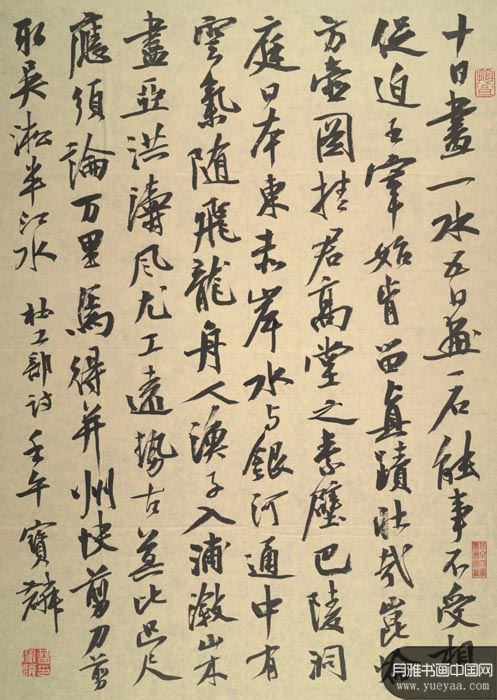 十日畫一水五日畫一石能事不受相
促迫王宰始肯留真蹟壯哉崑崙
方壺圖挂君高堂之素壁巴陵洞
庭日本東赤岸水与銀河通中有
雲氣随飛龍舟人漁子入浦溆山木
盡亞洪濤风尤工遠勢古莫比咫尺
應須論万里焉得并州快剪刀剪
取吴淞半江水 杜工部詩 壬午寶麟
月雅书画中国网
www.yueyaa.com